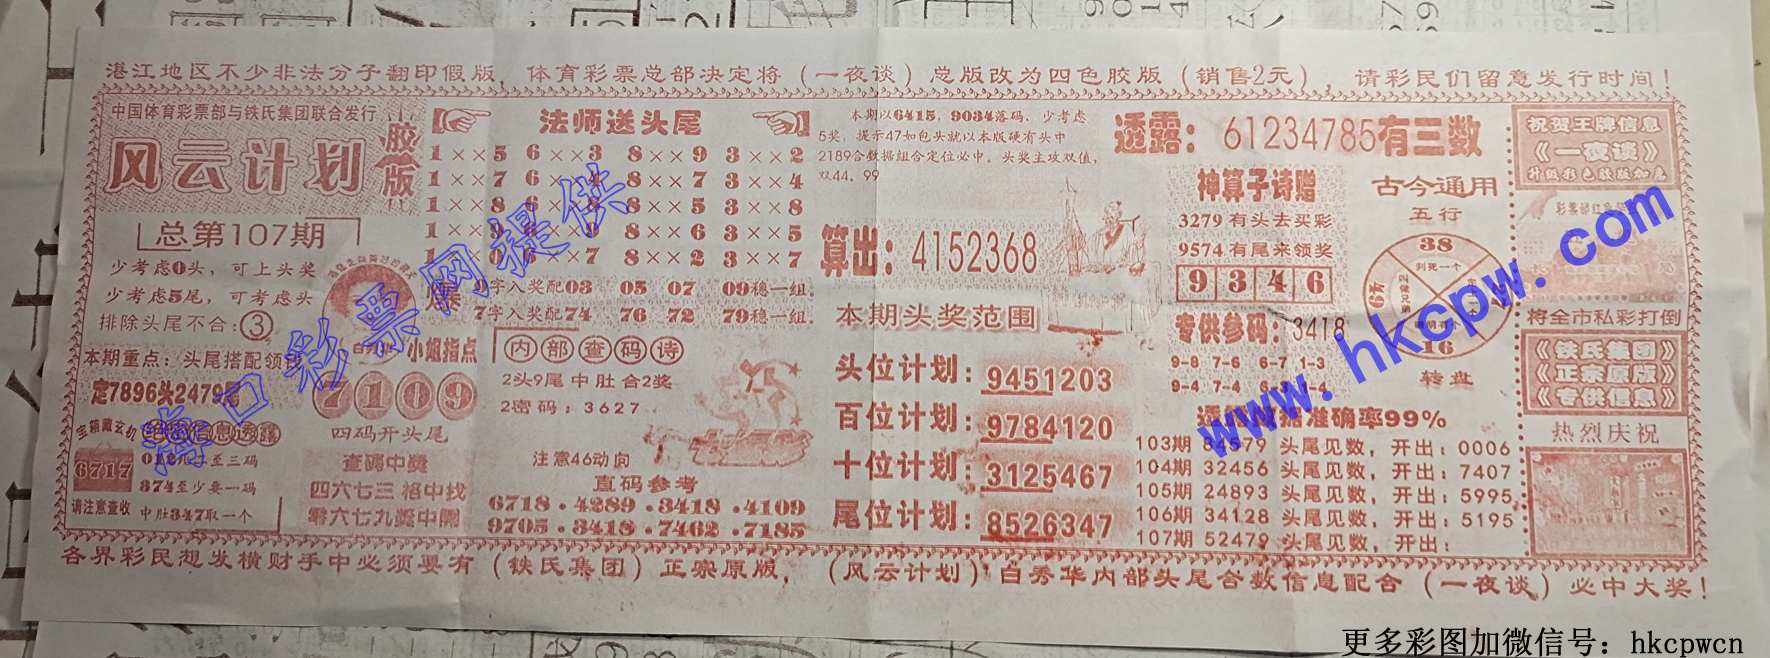 湛江地区不少非法分子翻印假版，体育彩票总部决定将（一夜谈）总版改为四色胶版（销售2元），请彩民们留意发行时间！
中国体育彩票部与铁氏集团联合发行
风云计划
胶版
总第107期
少考虑0头，可上头奖
少考虑5尾，可考虑头
排除头尾不合：③
本期重点：头尾搭配领
定7896头2479尾
宝箱藏玄机
6717
请注意查收
至三码
374至少要一码
中肚347取一个
法师送头尾
1××5 6××3 8××9 3××2
1××7 6××4 8××7 3××4
1××8 6××8 8××5 3××8
1××9 6××9 8××6 3××5
7 8××2 3××7
字入奖配03 05 07 09稳一组.
7字入奖配74 76 72 79稳一组.
小姐指点
7109
四码开头尾
查码中奖
四六七三 格中找
零六七九奖中开
内部查码诗
2头9尾中肚合2奖
2密码：3627
注意46动向
直码参考
6718.4289.3418.4109
9705.3418.7462.7185
本期以6415，9034落码，少考虑
5奖，提示47如包头就以本版硬有头中
2189合数据组合定位必中，头奖主攻双值，
双44、99
算出：4152368
本期头奖范围
头位计划：9451203
百位计划：9784120
十位计划：3125467
尾位计划：8526347
透露：61234785有三数
神算子诗赠
3279有头去买彩
9574有尾来领奖
9346
专供参码：3418
9-8 7-6 6-7 1-3
9-4 7-4
古今通用
五行
38
判死一个
16
转盘
准确率99%
103期 579 头尾见数，开出：0006
104期 32456 头尾见数，开出：7407
105期 24893 头尾见数，开出：5995
106期 34128 头尾见数，开出：5195
107期 52479 头尾见数，开出：
祝贺王牌信息
《一夜谈》
升级彩色胶版加惠
将全市私彩打倒
《铁氏集团》
《正宗原版》
《专供信息》
热烈庆祝
各界彩民想发横财手中必须要有（铁氏集团）正宗原版，（风云计划）白秀华内部头尾合数信息配合（一夜谈）必中大奖！
海口彩票网提供
www.hkcpw.com
更多彩图加微信号：hkcpwcn